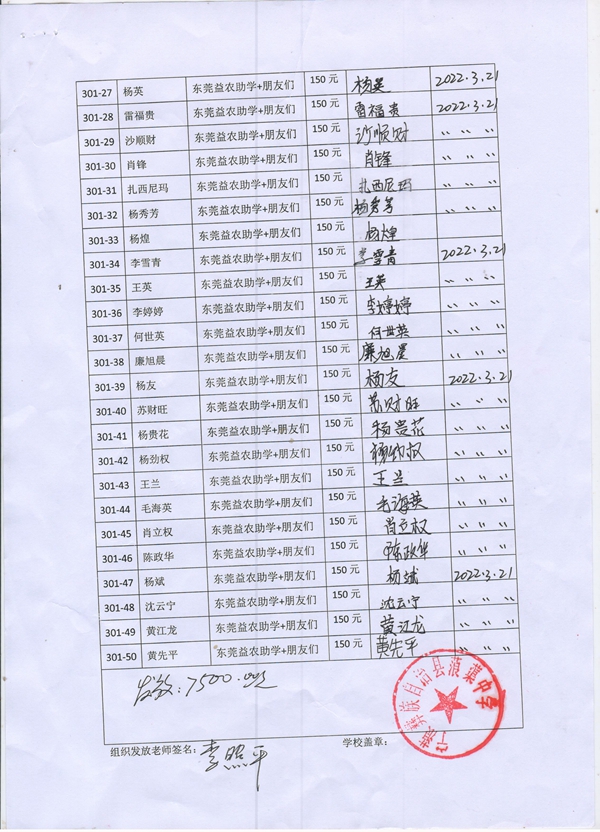 301-27 杨英 东莞益农助学+朋友们 150 元 杨英 2022.3.21
301-28 雷福贵 东莞益农助学+朋友们 150 元 雷福贵 2022.3.21
301-29 沙顺财 东莞益农助学+朋友们 150 元 沙顺财 〃 〃 〃
301-30 肖锋 东莞益农助学+朋友们 150 元 肖锋 〃 〃 〃
301-31 扎西尼玛 东莞益农助学+朋友们 150 元 扎西尼玛 〃 〃 〃
301-32 杨秀芳 东莞益农助学+朋友们 150 元 杨秀芳 〃 〃 〃
301-33 杨煌 东莞益农助学+朋友们 150 元 杨煌
301-34 李雪青 东莞益农助学+朋友们 150 元 李雪青 2022.3.21
301-35 王英 东莞益农助学+朋友们 150 元 王英 〃 〃 〃
301-36 李婷婷 东莞益农助学+朋友们 150 元 李婷婷 〃 〃 〃
301-37 何世英 东莞益农助学+朋友们 150 元 何世英 〃 〃 〃
301-38 廉旭晨 东莞益农助学+朋友们 150 元 廉旭晨 〃 〃 〃
301-39 杨友 东莞益农助学+朋友们 150 元 杨友 2022.3.21
301-40 苏财旺 东莞益农助学+朋友们 150 元 苏财旺 〃 〃 〃
301-41 杨贵花 东莞益农助学+朋友们 150 元 杨贵花 〃 〃 〃
301-42 杨劲权 东莞益农助学+朋友们 150 元 杨劲权 〃 〃 〃
301-43 王兰 东莞益农助学+朋友们 150 元 王兰 〃 〃 〃
301-44 毛海英 东莞益农助学+朋友们 150 元 毛海英 〃 〃 〃
301-45 肖立权 东莞益农助学+朋友们 150 元 肖立权 〃 〃 〃
301-46 陈政华 东莞益农助学+朋友们 150 元 陈政华 〃 〃 〃
301-47 杨斌 东莞益农助学+朋友们 150 元 杨斌 2022.3.21
301-48 沈云宁 东莞益农助学+朋友们 150 元 沈云宁 〃 〃 〃
301-49 黄江龙 东莞益农助学+朋友们 150 元 黄江龙 〃 〃 〃
301-50 黄先平 东莞益农助学+朋友们 150 元 黄先平 〃 〃 〃
7500.00元
宁蒗彝族自治县蒗蕖中学
组织发放老师签名: 李照平 学校盖章: